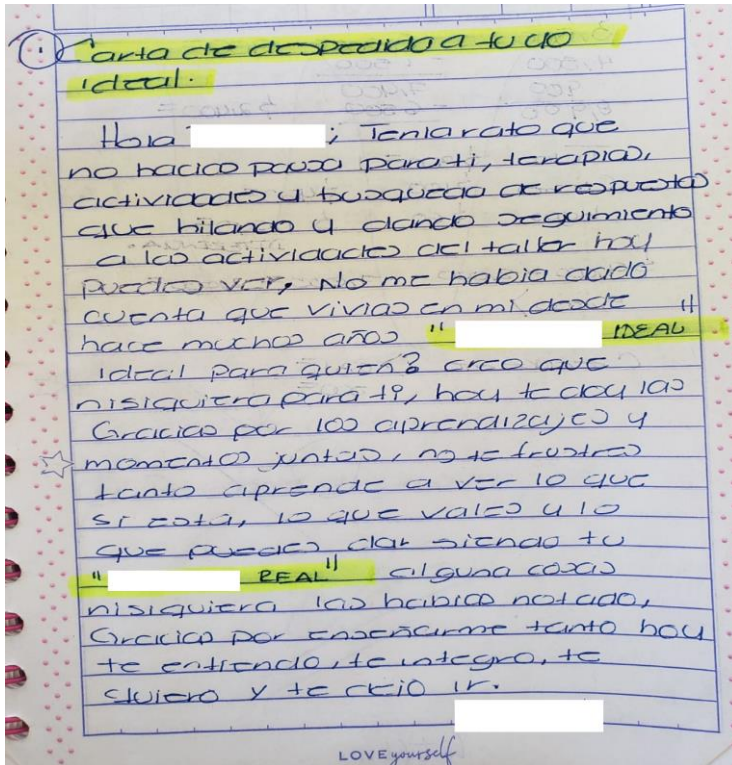 1 Carta de despedida a tu yo
ideal.
Hola ; Tenia rato que
no hacias pausa para ti, terapias,
actividades y busqueda de respuestas
que hilando y dando seguimiento
a las actividades del taller hoy
puedes ver, No me habia dado
cuenta que vivias en mi desde
hace muchos años " IDEAL"
ideal para quien? creo que
nisiquiera para ti, hoy te doy las
Gracias por los aprendizajes y
momentos juntas, no te frustres
tanto aprende a ver lo que
si esta, lo que vales y lo
que puedes dar siendo tu
" REAL" alguna cosas
nisiquiera las habias notado,
Gracias por enseñarme tanto hoy
te entiendo, te integro, te
quiero y te dejo ir.
LOVE yourself